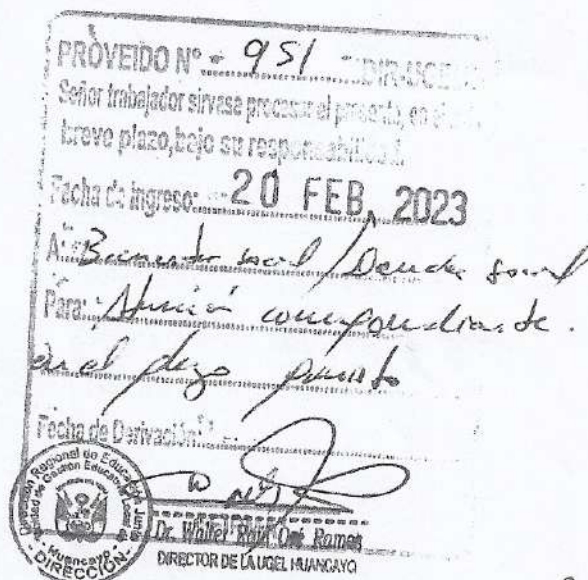 PROVEIDO Nº 951 -DIR-UGEL
Señor trabajador sirvase procesar el presente, en el
breve plazo, bajo su responsabilidad.
Fecha de ingreso: 20 FEB, 2023
A: Bienestar social / Deuda social
Para: Atención correspondiente.
en el plazo previsto
Fecha de Derivación:
Dirección Regional de Educación Junín
Unidad de Gestión Educativa Local
Huancayo
DIRECCIÓN
Dr. Walter Ramos
DIRECTOR DE LA UGEL HUANCAYO